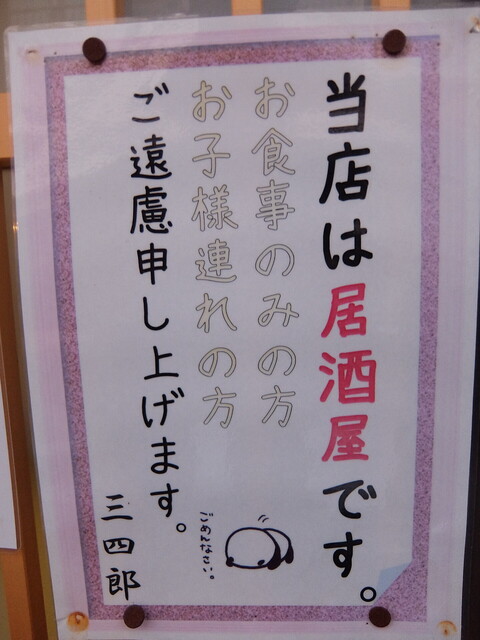 当店は居酒屋です。
お食事のみの方
お子様連れの方
ご遠慮申し上げます。
ごめんなさい。
三四郎